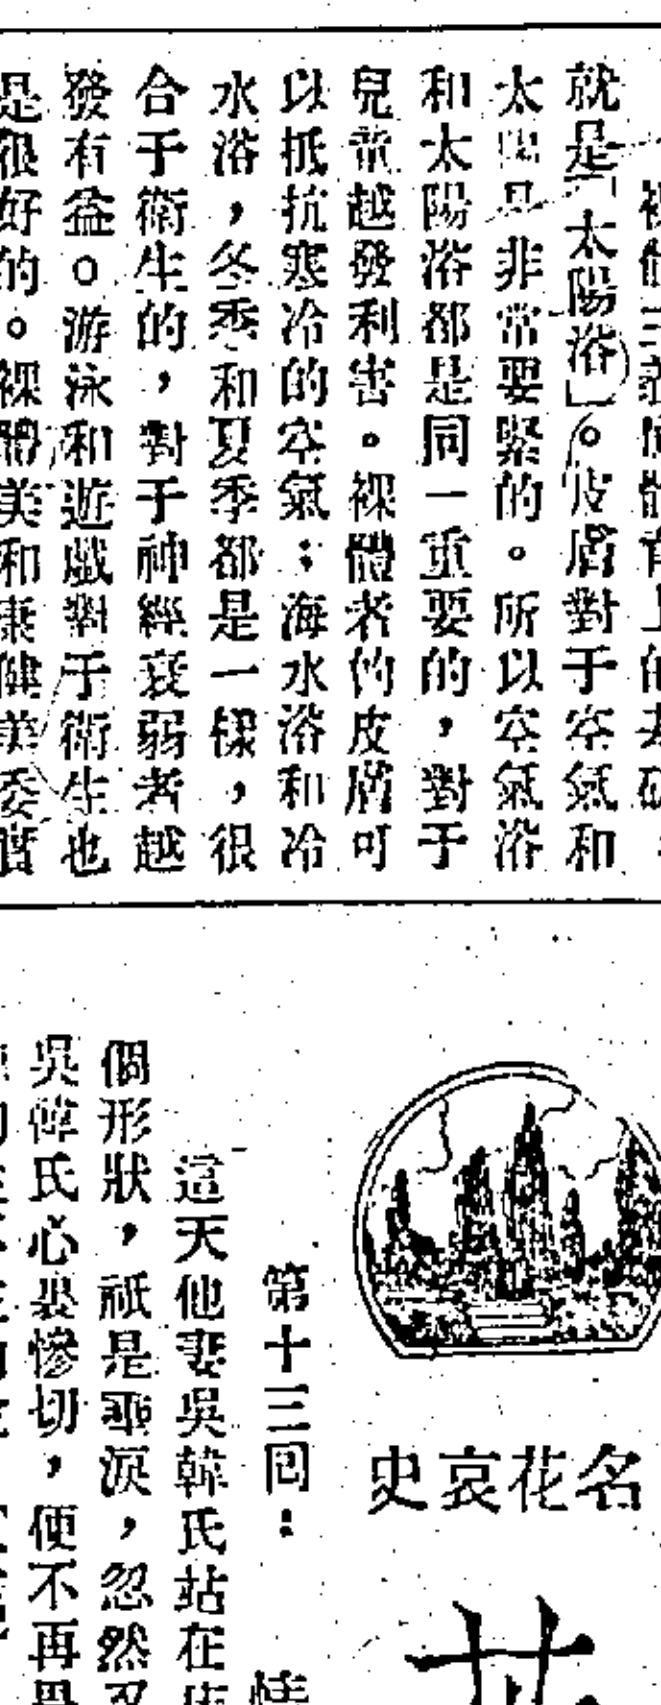 就是「太陽浴」。皮膚對于空氣和
太陽是非常要緊的。所以空氣浴
和太陽浴都是同一重要的，對于
兒童越發利害。裸體者的皮膚可
以抵抗寒冷的空氣；海水浴和冷
水浴，冬季和夏季都是一樣，很
合于衛生的，對于神經衰弱者越
發有益。游泳和遊戲對于衛生也
是很好的。裸體美和康健美委實
名花哀史
第十三回：
這天他妻吳韓氏站在床
個形狀，祇是垂淚，忽然
吳韓氏心裏慘切，便不再